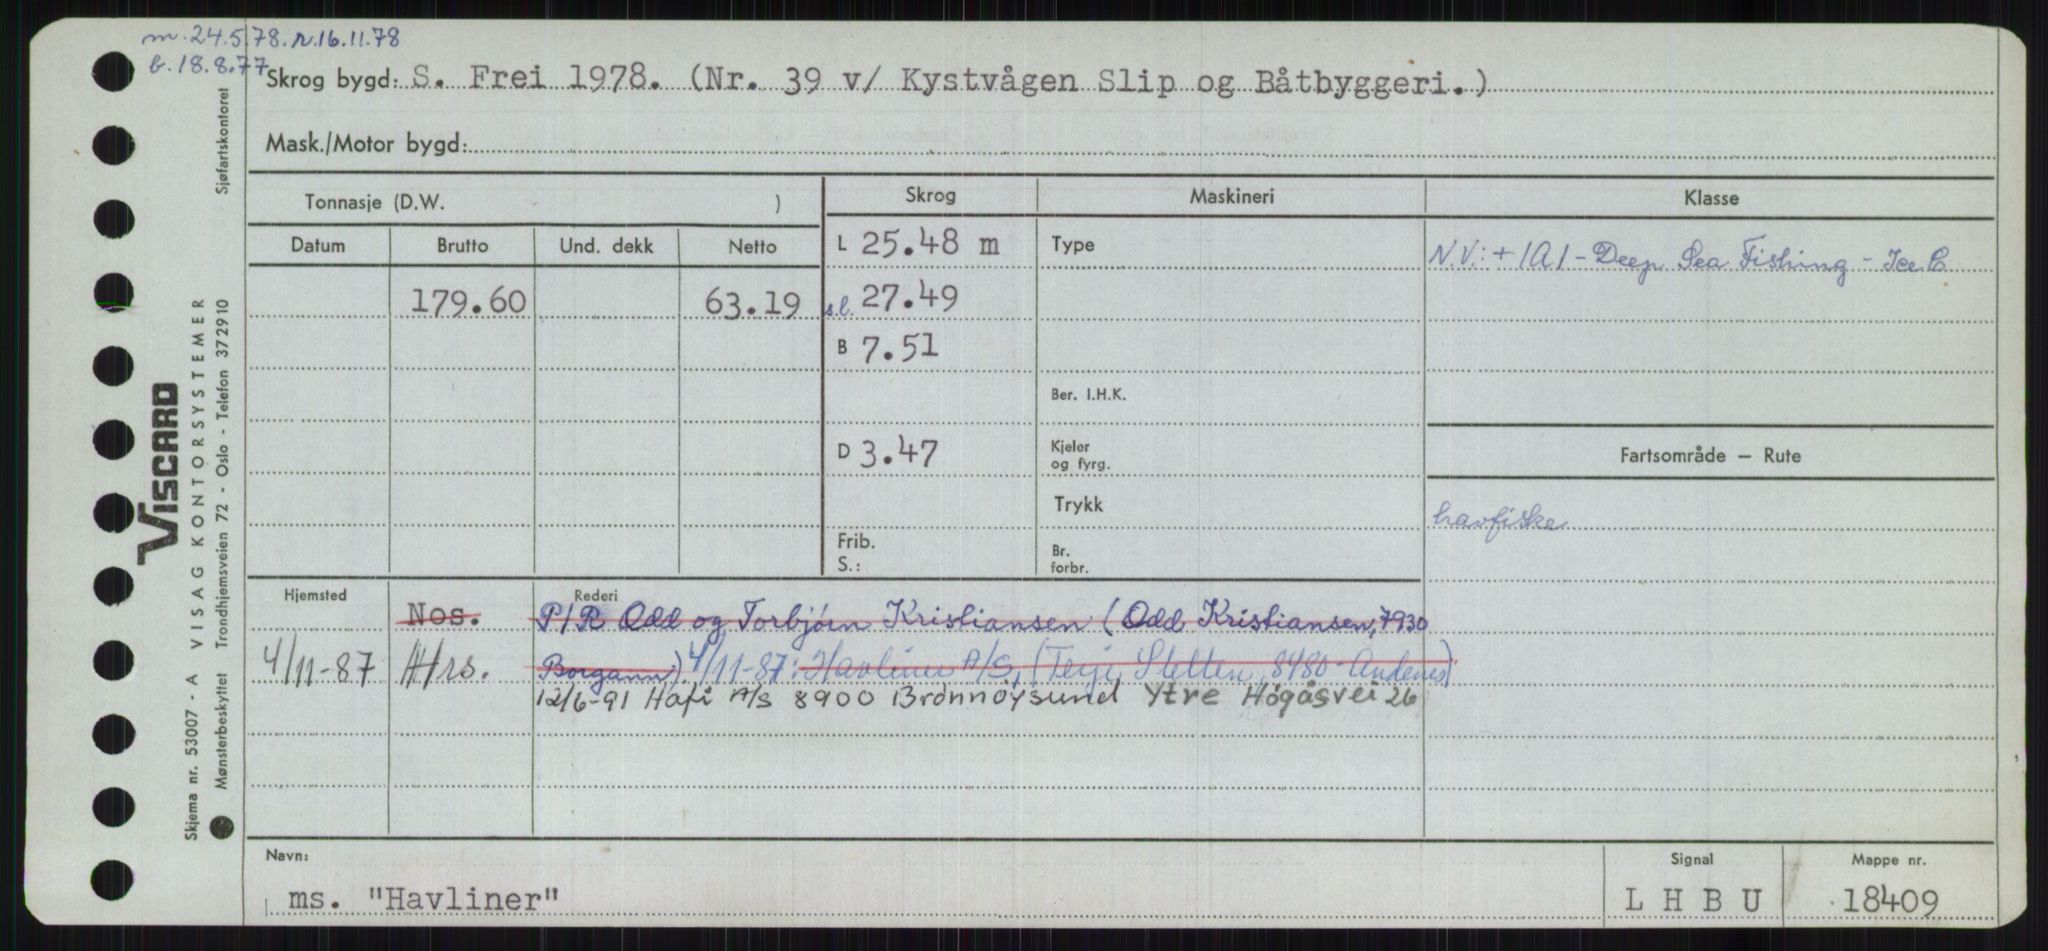 m. 24.5.78. r. 16.11.78
b. 18.8.77
Skrog bygd: S. Frei 1978. (Nr. 39 v/ Kystvågen Slip og Båtbyggeri.)
Mask./Motor bygd:
Tonnasje (D.W. )
Skrog
Maskineri
Klasse
Datum Brutto Und. dekk Netto
L 25.48 m
Type
N.V.: + 1A1 - Deep Sea Fishing - Ice C
179.60 63.19
s.l. 27.49
B 7.51
Ber. I.H.K.
D 3.47
Kjeler
og fyrg.
Fartsområde — Rute
Trykk
havfiske
Frib.
S.:
Br.
forbr.
Hjemsted
Rederi
Nos. P/R Odd og Torbjørn Kristiansen (Odd Kristiansen, 7930
4/11-87 Hrs. Borgann) 4/11-87: Havliner A/S, (Terje Sletten, 8480 Andenes)
12/6-91 Hafi A/S 8900 Brønnøysund Ytre Högåsvei 26
Navn:
ms. "Havliner"
Signal
L H B U
Mappe nr.
18409
VISCARD
VISAG KONTORSYSTEMER
Skjema nr. 53007 - A
Mønsterbeskyttet Trondhjemsveien 72 - Oslo - Telefon 372910
Sjøfartskontoret